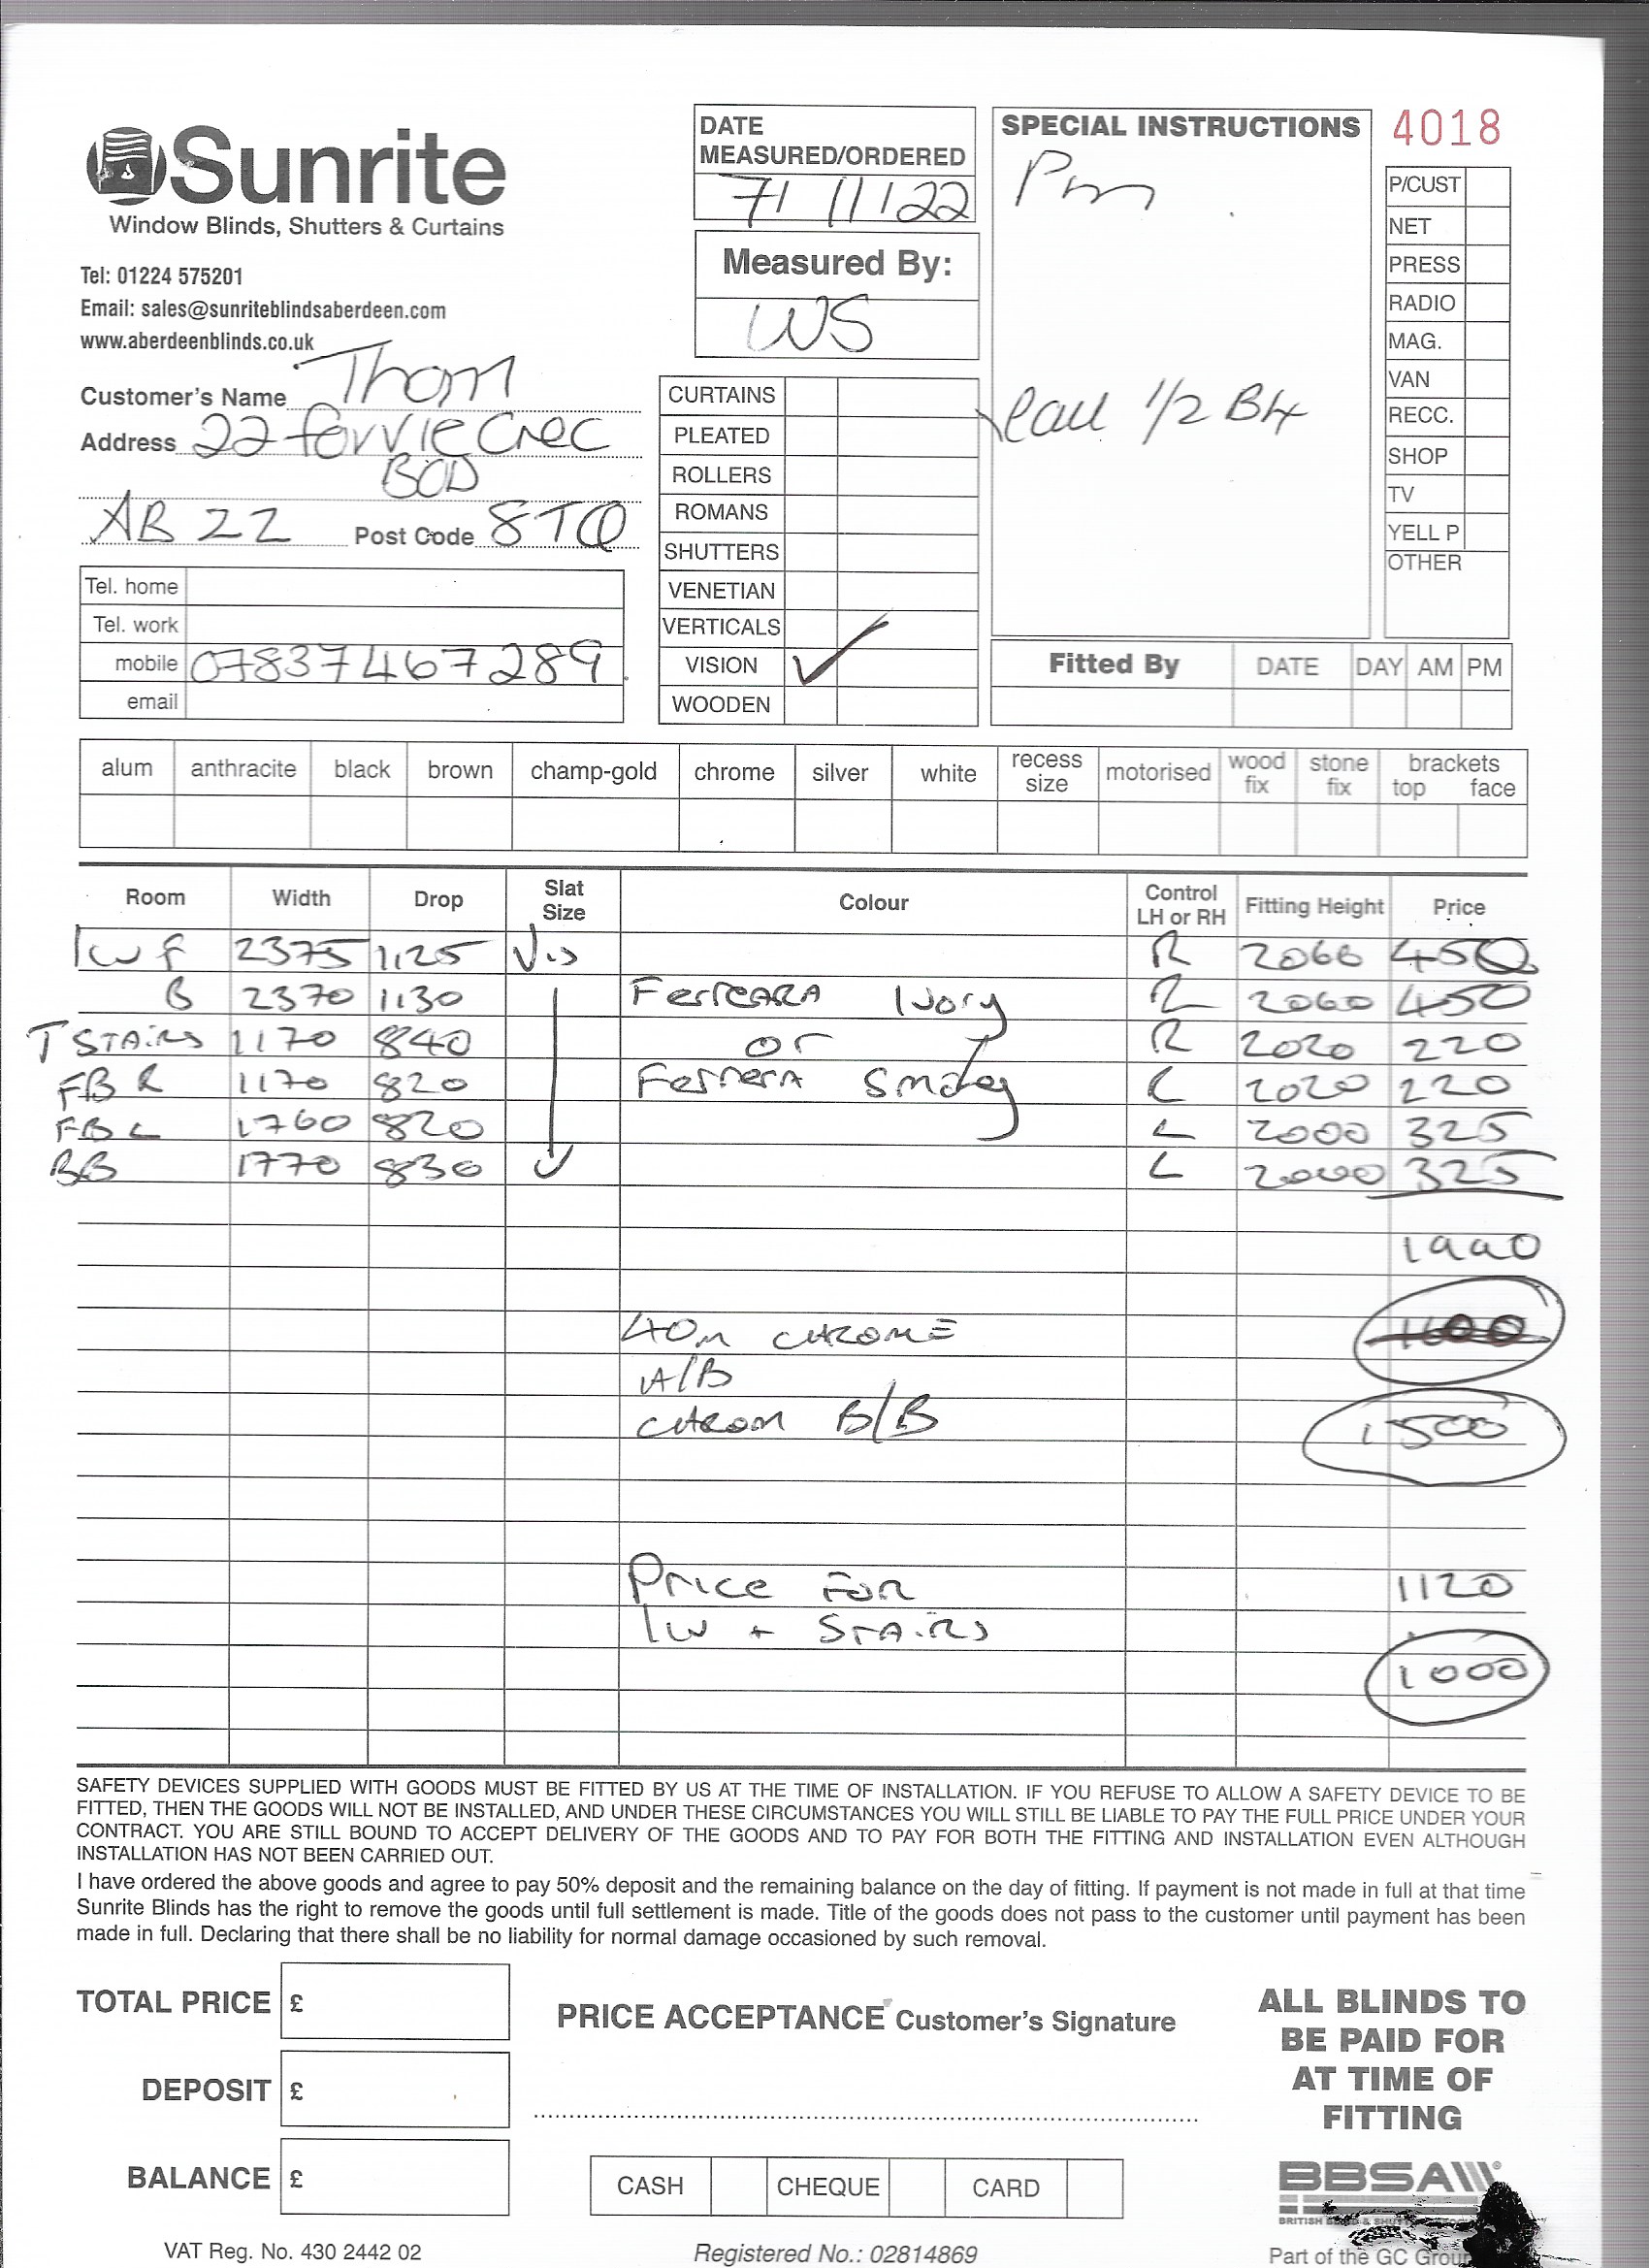 Sunrite
Window Blinds, Shutters & Curtains
Tel: 01224 575201
Email: sales@sunriteblindsaberdeen.com
www.aberdeenblinds.co.uk
Customer's Name Thom
Address 22 forvie Cresc
BOD
AB22 Post Code 8TQ
Tel. home
Tel. work
mobile 07837467289
email
DATE
MEASURED/ORDERED
7/11/22
Measured By:
WS
CURTAINS
PLEATED
ROLLERS
ROMANS
SHUTTERS
VENETIAN
VERTICALS
VISION ✓
WOODEN
SPECIAL INSTRUCTIONS
Pm
Call 1/2 B4
4018
P/CUST
NET
PRESS
RADIO
MAG.
VAN
RECC.
SHOP
TV
YELL P
OTHER
Fitted By DATE DAY AM PM
alum anthracite black brown champ-gold chrome silver white recess size motorised wood fix stone fix brackets top face
Room Width Drop Slat Size Colour Control LH or RH Fitting Height Price
LW F 2375 1125 Vis R 2060 450
B 2370 1130 FerrCARA Ivory R 2060 450
T STAIRS 1170 840 or R 2020 220
FB R 1170 820 Ferrera Smokey L 2020 220
FB L 1760 820 L 2000 325
BB 1770 830 L 2000 325
1990
40m CHROME 1600
A/B
CHROM B/B 1500
Price For 1120
LW + STAIRS
1000
SAFETY DEVICES SUPPLIED WITH GOODS MUST BE FITTED BY US AT THE TIME OF INSTALLATION. IF YOU REFUSE TO ALLOW A SAFETY DEVICE TO BE
FITTED, THEN THE GOODS WILL NOT BE INSTALLED, AND UNDER THESE CIRCUMSTANCES YOU WILL STILL BE LIABLE TO PAY THE FULL PRICE UNDER YOUR
CONTRACT. YOU ARE STILL BOUND TO ACCEPT DELIVERY OF THE GOODS AND TO PAY FOR BOTH THE FITTING AND INSTALLATION EVEN ALTHOUGH
INSTALLATION HAS NOT BEEN CARRIED OUT.
I have ordered the above goods and agree to pay 50% deposit and the remaining balance on the day of fitting. If payment is not made in full at that time
Sunrite Blinds has the right to remove the goods until full settlement is made. Title of the goods does not pass to the customer until payment has been
made in full. Declaring that there shall be no liability for normal damage occasioned by such removal.
TOTAL PRICE £
DEPOSIT £
BALANCE £
PRICE ACCEPTANCE Customer's Signature
CASH CHEQUE CARD
ALL BLINDS TO
BE PAID FOR
AT TIME OF
FITTING
BBSA
BRITISH
VAT Reg. No. 430 2442 02
Registered No.: 02814869
Part of the GC Group